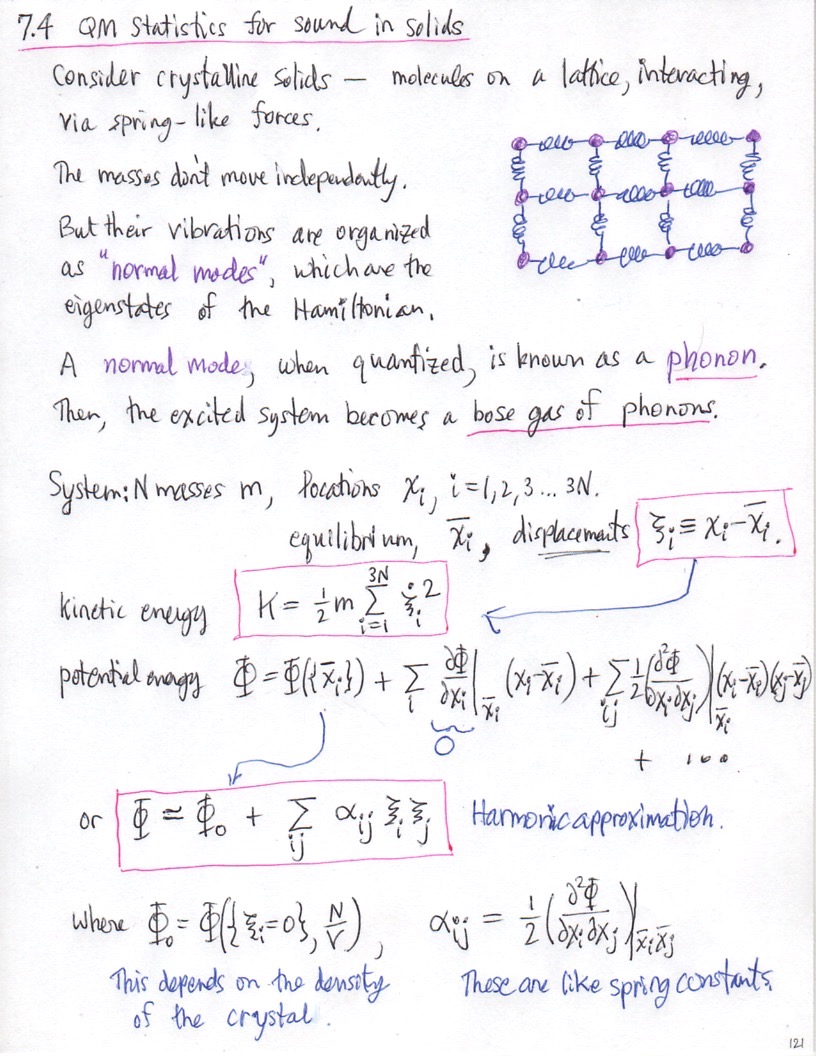 7.4 QM Statistics for sound in solids
Consider crystalline solids — molecules on a lattice, interacting,
via spring-like forces.
The masses don't move independently.
But their vibrations are organized
as "normal modes", which are the
eigenstates of the Hamiltonian.
A normal mode, when quantized, is known as a phonon.
Then, the excited system becomes a bose gas of phonons.
System: N masses m, locations xᵢ, i=1,2,3...3N.
equilibrium, x̄ᵢ, displacements ξᵢ ≡ xᵢ - x̄ᵢ.
kinetic energy K = ½ m Σ_{i=i}^{3N} ξ̇ᵢ²
potential energy Φ = Φ({x̄ᵢ}) + Σ_i ∂Φ/∂xᵢ|_{x̄ᵢ} (xᵢ-x̄ᵢ) + Σ_{ij} ½ (∂²Φ/∂xᵢ∂xⱼ)|_{x̄ᵢ} (xᵢ-x̄ᵢ)(xⱼ-x̄ⱼ)
0
+ ...
or Φ ≃ Φ₀ + Σ_{ij} αᵢⱼ ξᵢ ξⱼ Harmonic approximation.
where Φ₀ = Φ({ξᵢ=0}, N/V), αᵢⱼ = ½ (∂²Φ/∂xᵢ∂xⱼ)|_{x̄ᵢ x̄ⱼ}
This depends on the density These are like spring constants.
of the crystal.
121